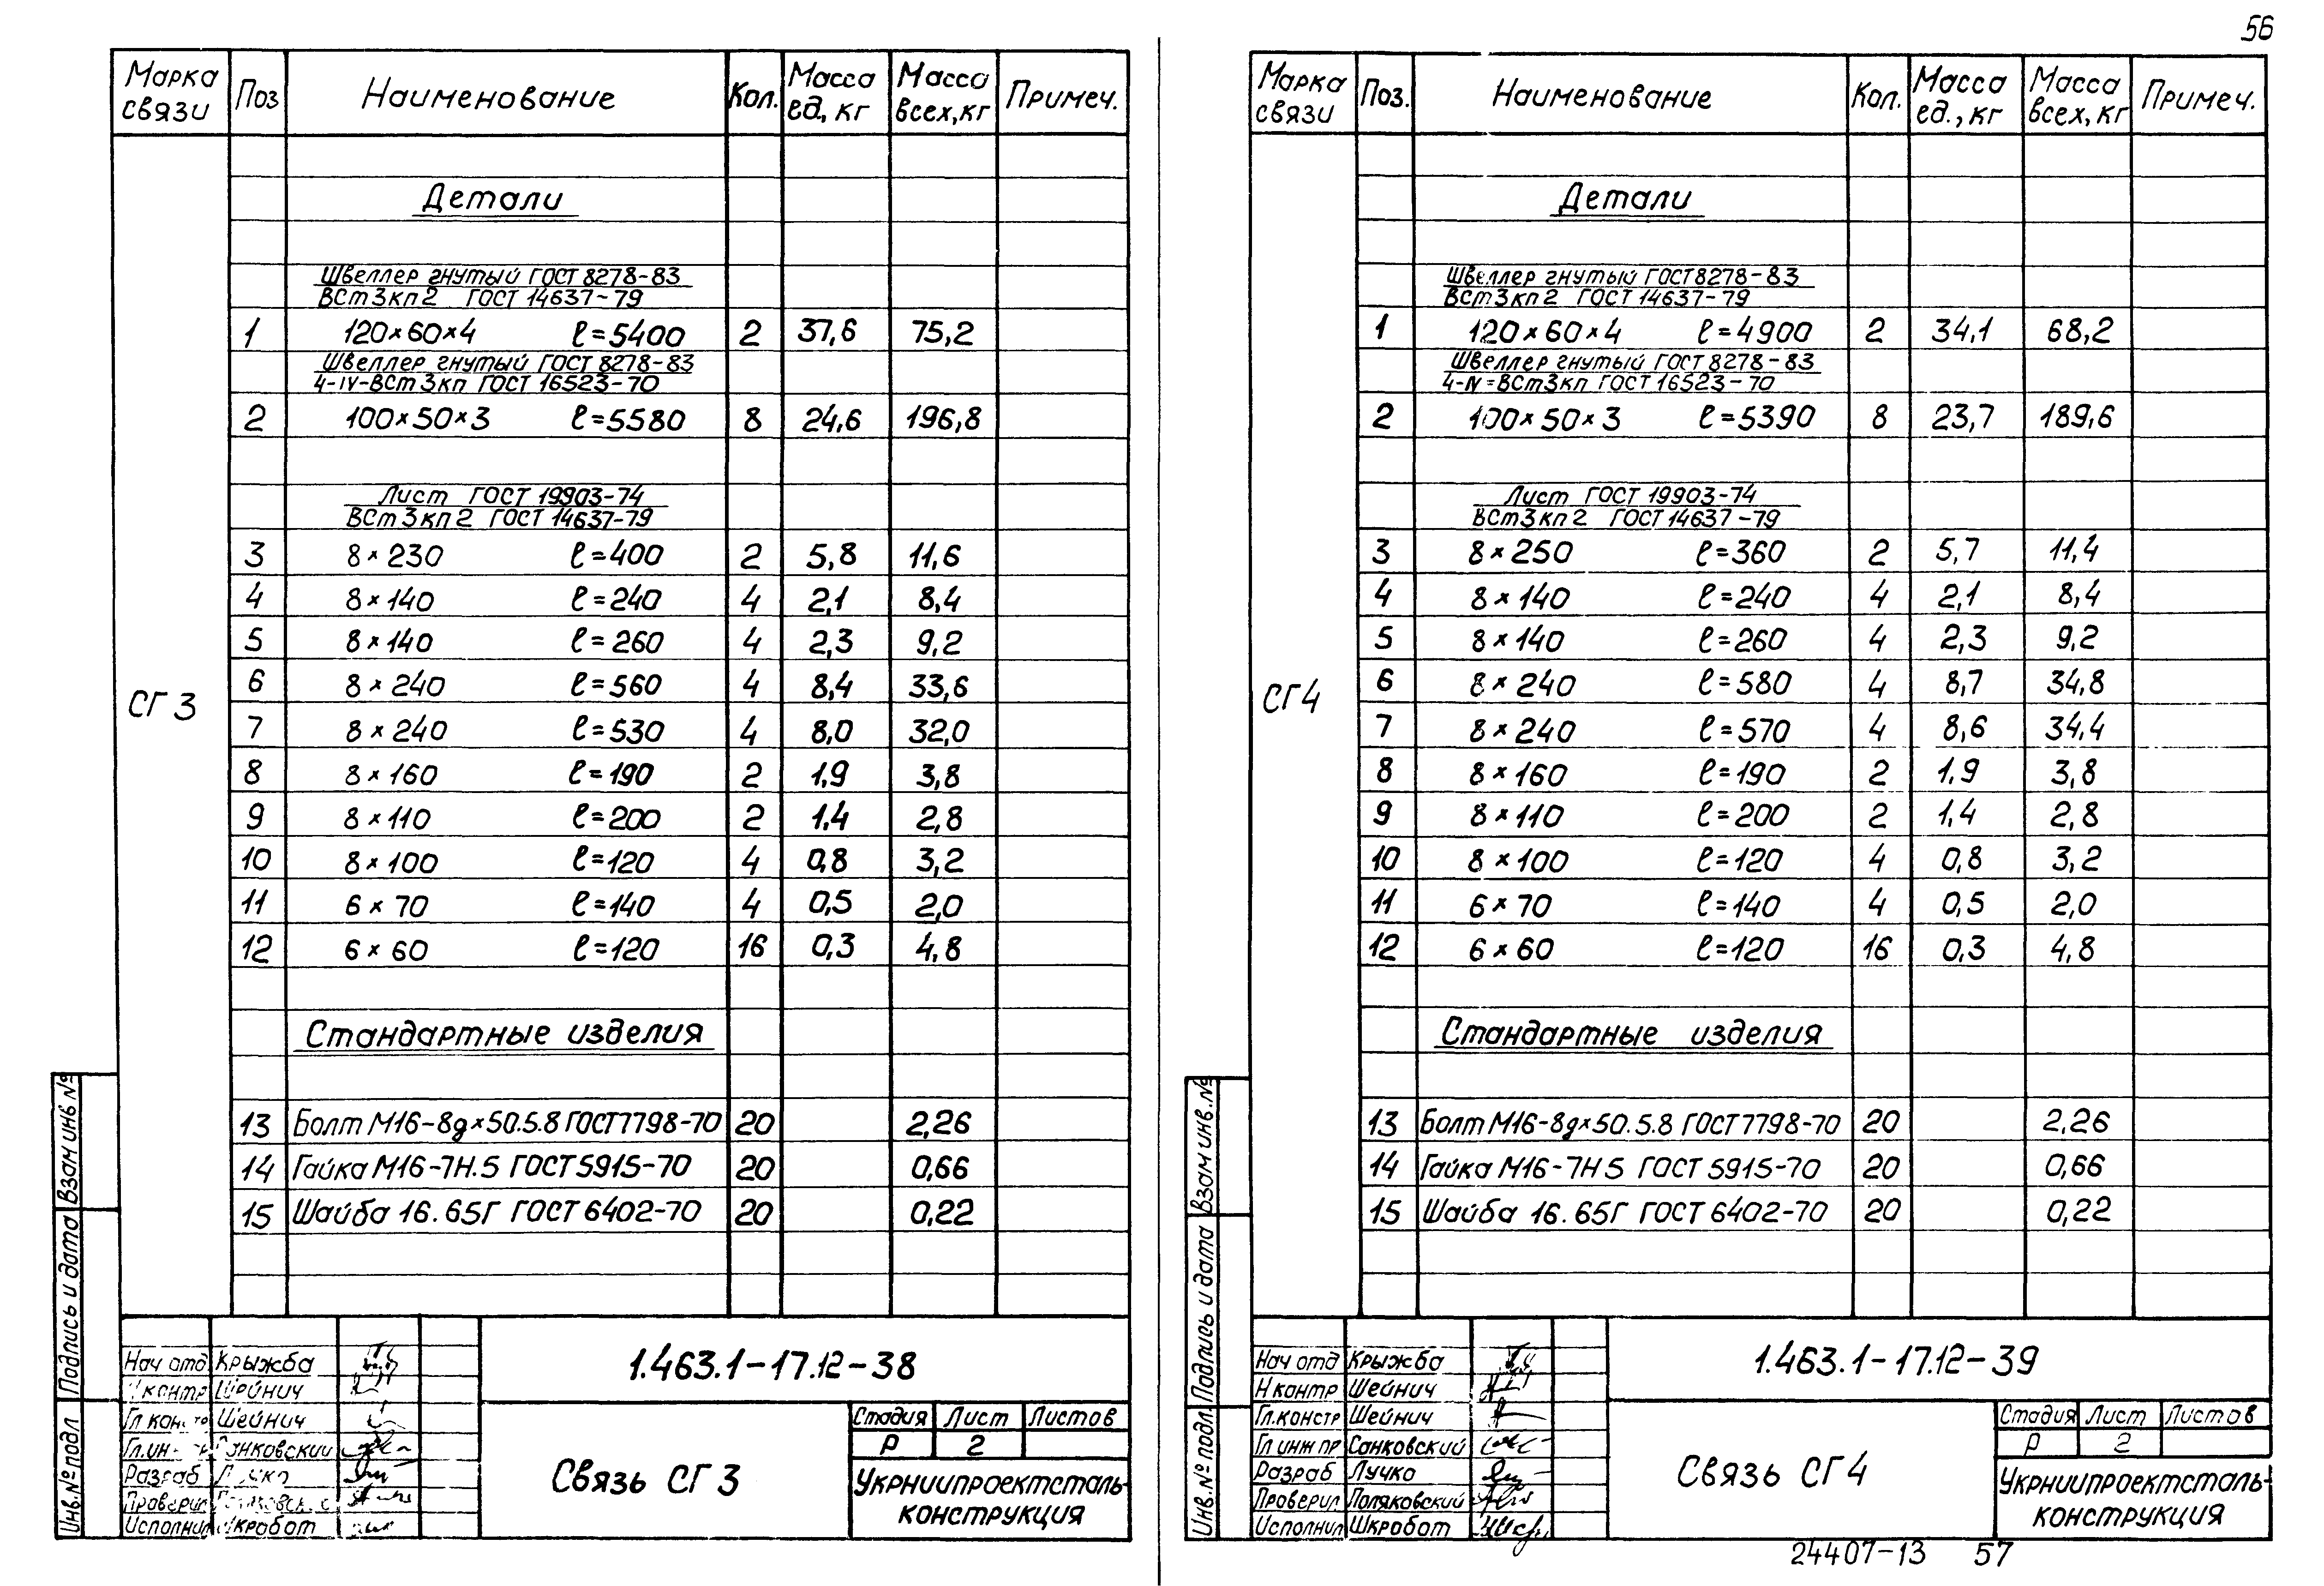 56
Марка связи Поз Наименование Кол. Масса ед, кг Масса всех, кг Примеч.
Детали
Швеллер гнутый ГОСТ 8278-83
ВСт3кп2 ГОСТ 14637-79
1 120×60×4 ℓ=5400 2 37,6 75,2
Швеллер гнутый ГОСТ 8278-83
4-IV-ВСт3кп ГОСТ 16523-70
2 100×50×3 ℓ=5580 8 24,6 196,8
Лист ГОСТ 19903-74
ВСт3кп2 ГОСТ 14637-79
3 8×230 ℓ=400 2 5,8 11,6
4 8×140 ℓ=240 4 2,1 8,4
5 8×140 ℓ=260 4 2,3 9,2
6 8×240 ℓ=560 4 8,4 33,6
СГ 3
7 8×240 ℓ=530 4 8,0 32,0
8 8×160 ℓ=190 2 1,9 3,8
9 8×110 ℓ=200 2 1.4 2,8
10 8×100 ℓ=120 4 0,8 3,2
11 6×70 ℓ=140 4 0,5 2,0
12 6×60 ℓ=120 16 0,3 4,8
Стандартные изделия
13 Болт М16-8g×50.5.8 ГОСТ7798-70 20 2,26
14 Гайка М16-7Н.5 ГОСТ 5915-70 20 0,66
15 Шайба 16.65Г ГОСТ 6402-70 20 0,22
Взам инв №
Подпись и дата
Инв.№ подл
Нач отд Крыжба
контр Шейнич
Шейнич
Разраб
Исполнил
1.463.1-17.12-38
Связь СГ 3
Стадия Лист Листов
Р 2
Укрниипроектсталь-
конструкция
Марка связи Поз. Наименование Кол. Масса ед., кг Масса всех, кг Примеч.
Детали
Швеллер гнутый ГОСТ 8278-83
ВСт3кп2 ГОСТ 14637-79
1 120×60×4 ℓ=4900 2 34,1 68,2
Швеллер гнутый ГОСТ 8278-83
4-IV=ВСт3кп ГОСТ 16523-70
2 100×50×3 ℓ=5390 8 23,7 189,6
Лист ГОСТ 19903-74
ВСт3кп2 ГОСТ 14637-79
3 8×250 ℓ=360 2 5,7 11,4
4 8×140 ℓ=240 4 2,1 8,4
5 8×140 ℓ=260 4 2,3 9,2
6 8×240 ℓ=580 4 8,7 34,8
СГ4
7 8×240 ℓ=570 4 8,6 34,4
8 8×160 ℓ=190 2 1.9 3,8
9 8×110 ℓ=200 2 1,4 2,8
10 8×100 ℓ=120 4 0,8 3,2
11 6×70 ℓ=140 4 0,5 2,0
12 6×60 ℓ=120 16 0,3 4,8
Стандартные изделия
13 Болт М16-8g×50.5.8 ГОСТ7798-70 20 2,26
14 Гайка М16-7Н5 ГОСТ 5915-70 20 0,66
15 Шайба 16.65Г ГОСТ 6402-70 20 0,22
Взам инв.№
Подпись и дата
Инв.№ подл.
Нач отд Крыжба
Н контр Шейнич
Гл.констр Шейнич
Гл инж пр Санковский
Разраб Лучко
Проверил Поляковский
Исполнил Шкробот
1.463.1-17.12-39
Связь СГ4
Стадия Лист Листов
Р 2
Укрниипроектсталь-
конструкция
24407-13 57